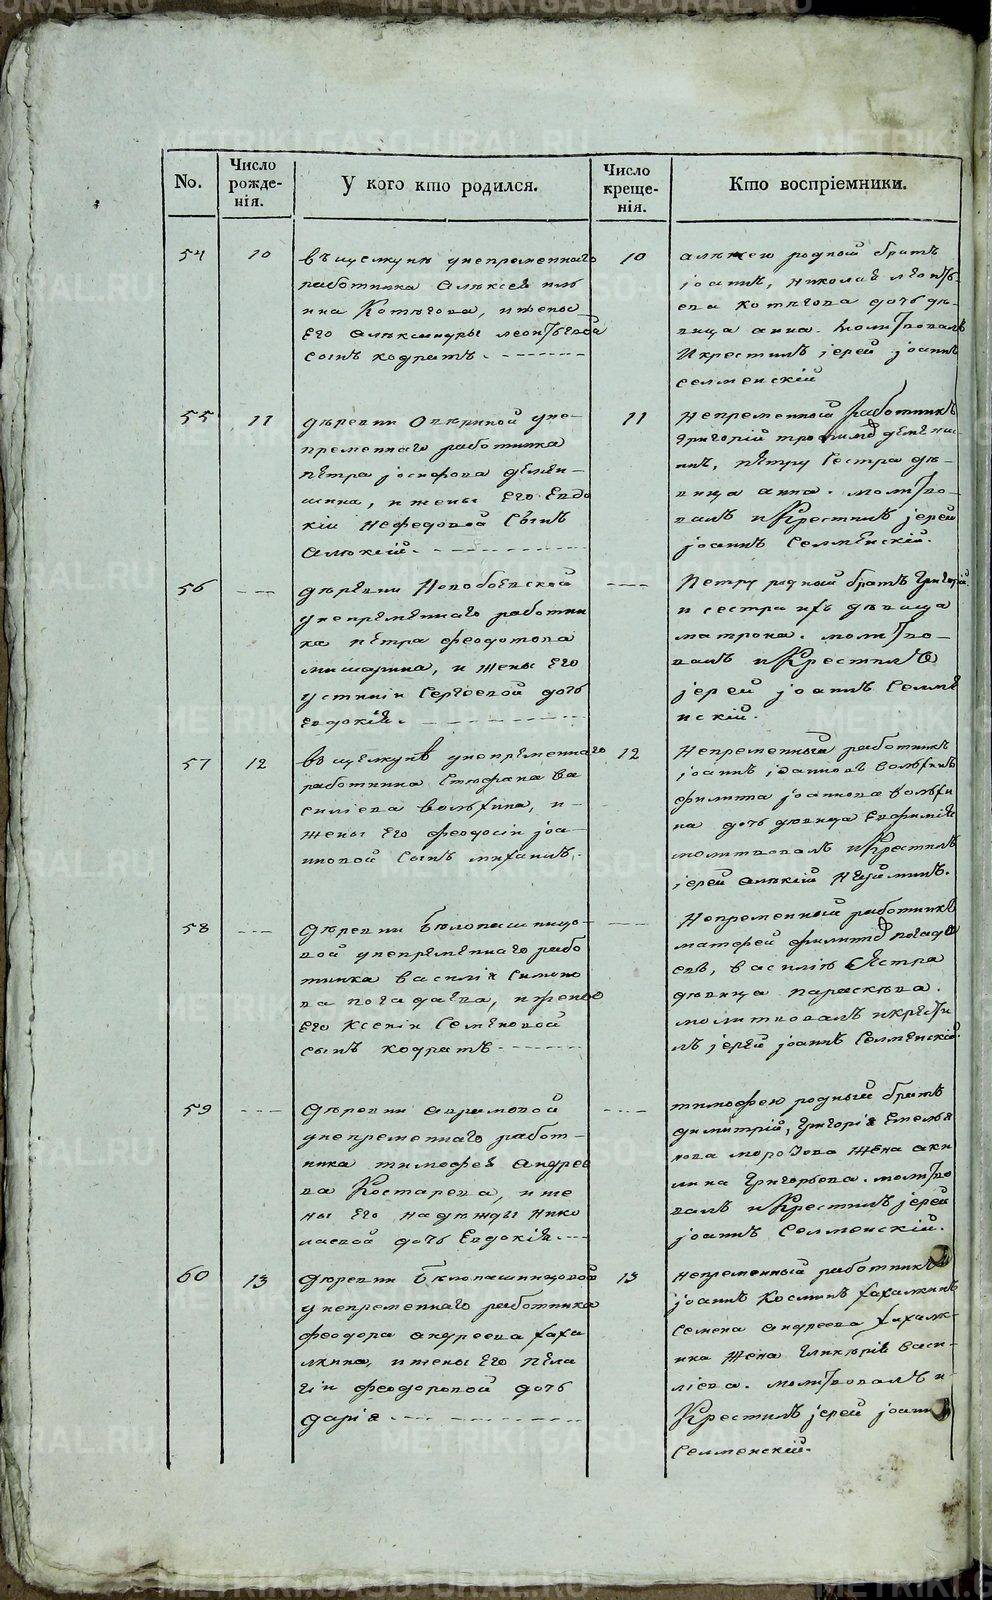 METRIKI.GASO-URAL.RU
No.
Число
рожде-
нія.
У кого кто родился.
Число
креще-
нія.
Кто воспріемники.
54
10
въ щелкунъ унепременнаго
работника Алѣксея иль
ина Котѣгова, ижены
Его Алѣксандры леонтьевой
сынъ кодратъ.
10
алѣксею родный братъ
іоаннъ, николая леонть
ева котѣгова дочь дѣ-
вица анна. молитвовалъ
икрестилъ іерей іоаннъ
селменскій
55
11
дѣревни Аверинской уне-
пременнаго работника
пѣтра іосифова
ижены Его Евдо
кіи Нефедовой Сынъ
Алѣкѣй.
11
Непременный Работникъ
Григорій трофимовъ
пѣтру Сестра дѣ-
вица анна. молитво-
валъ иКрестилъ іерей
іоаннъ Селмѣнскій.
56
дѣревни
унепремѣннаго работни
ка пѣтра феодотова
и жены Его
устиніи Сергѣевой дочь
евдокія.
Петру родный братъ Григорій
и сестра ихъ дѣвица
матрона. молитво-
валъ иКрестилъ
іерей іоаннъ Селмѣ
нскій.
57
12
въ щелкунѣ унепременнаго
работника Стефана ва
силіева и-
жены Его феодосіи іоа-
нновой Сынъ михаилъ.
12
Непременный работникъ
іоаннъ іоанновъ
филиппа іоаннова
на дочь дѣвица Евфимія
молитвовалъ иКрестилъ
іерей алѣкѣй
58
Дѣревни Бѣлопашинцо-
вой унепремѣннаго рабо
тника василія Симоно
ва погадаева, ижены
Его Ксеніи Семѣновой
сынъ кодратъ
Непременный работникъ
матфей филиповъ погада
евъ, василію Сѣстра
дѣвица параскѣва.
молитвовалъ икрѣсти
лъ іерей іоаннъ Селменскій.
59
дѣревни аврамовой
унепременнаго работ-
ника тимофея андрее
ва Костарева, ижe
ны Его надѣжды нико
лаевой дочь Евдокія.
тимофею родный братъ
димитрій, Григорія Емелья
нова морозова жена аки
лина Григорьева. молитво
валъ иКрестилъ іерей
іоаннъ Селменскій.
60
13
дѣревни Бѣлопашинцовой
унепременнаго работника
феодора андреева хаха
лкина, ижены Его пѣла
гіи феодоровой дочь
дарія
13
непременный работникъ
іоаннъ косминъ хахалкинъ
Семена андреева хахалк-
ина жена Гликѣрія васи-
ліева. молитвовалъ и
Крестилъ іерей іоаннъ
Селменскій.